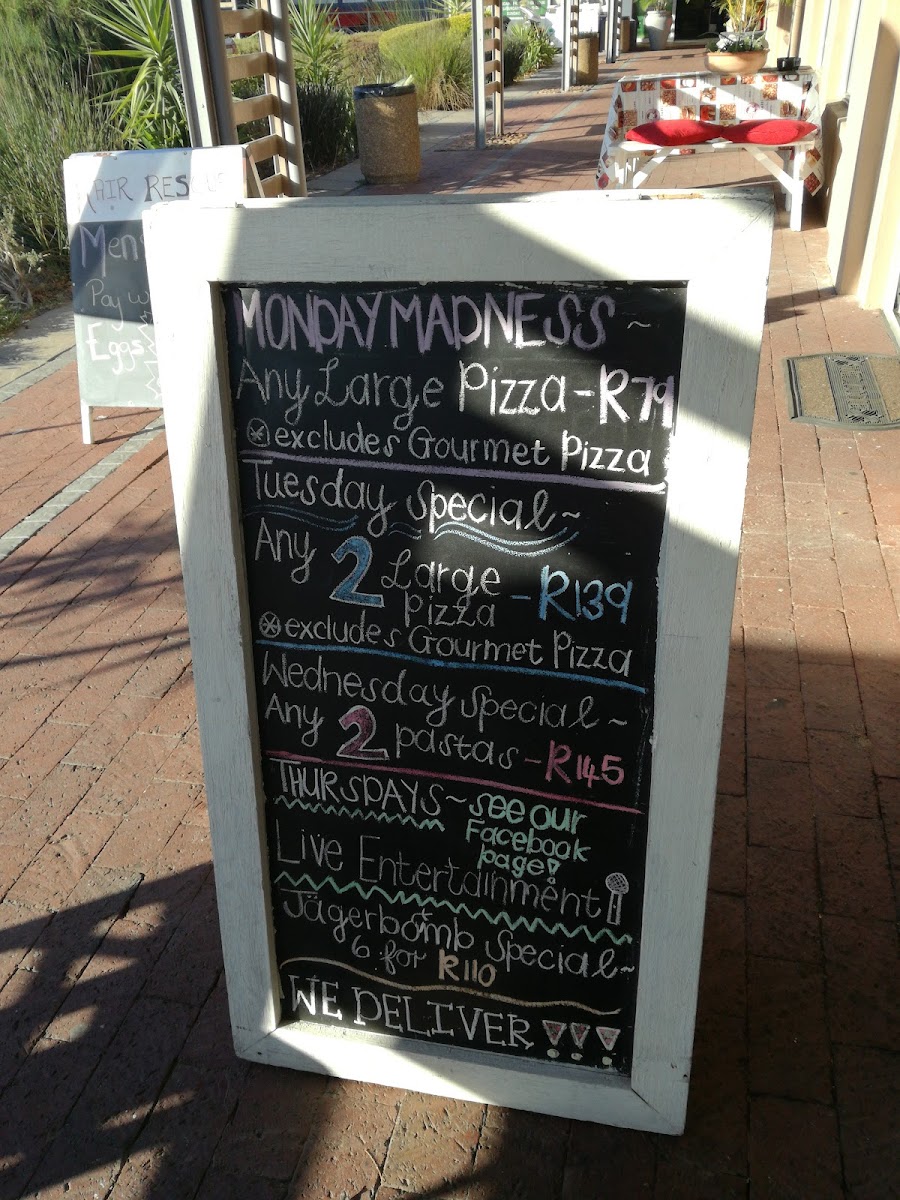 HAIR RES
Mens
Pay w
Eggs
MONDAY MADNESS ~
Any Large Pizza - R79
⊛ excludes Gourmet Pizza
Tuesday Special ~
Any 2 Large Pizza - R139
⊛ excludes Gourmet Pizza
Wednesday Special ~
Any 2 pastas - R145
THURSDAYS ~ see our
Facebook
page!
Live Entertainment
Jägerbomb Special ~
6 for R110
WE DELIVER !!!